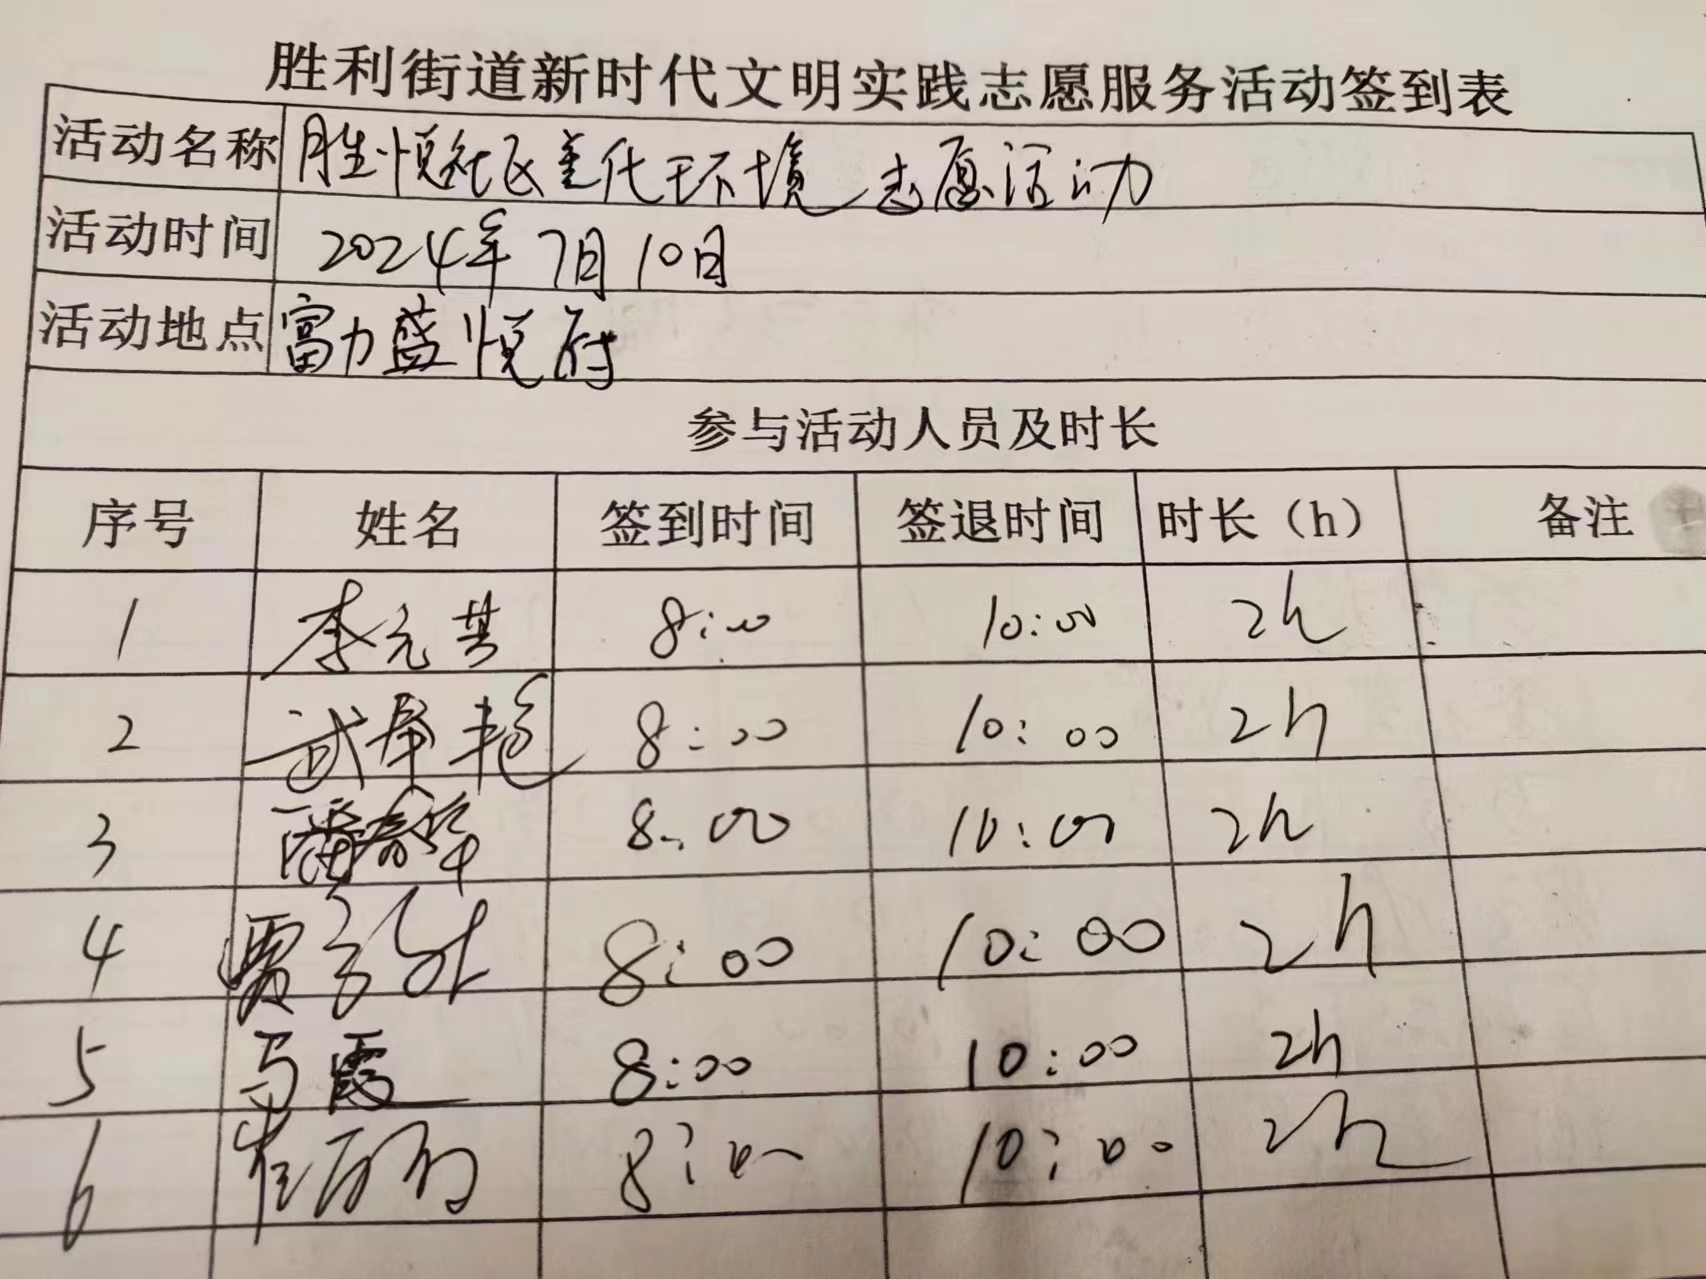 胜利街道新时代文明实践志愿服务活动签到表
活动名称 胜悦社区美化环境志愿活动
活动时间 2024年7月10日
活动地点 富力盛悦府
参与活动人员及时长
序号 姓名 签到时间 签退时间 时长（h） 备注
1 李元芸 8:00 10:00 2h
2 武 艳 8:00 10:00 2h
3 潘春华 8:00 10:00 2h
4 贾 8:00 10:00 2h
5 马霞 8:00 10:00 2h
6 8:00 10:00 2h